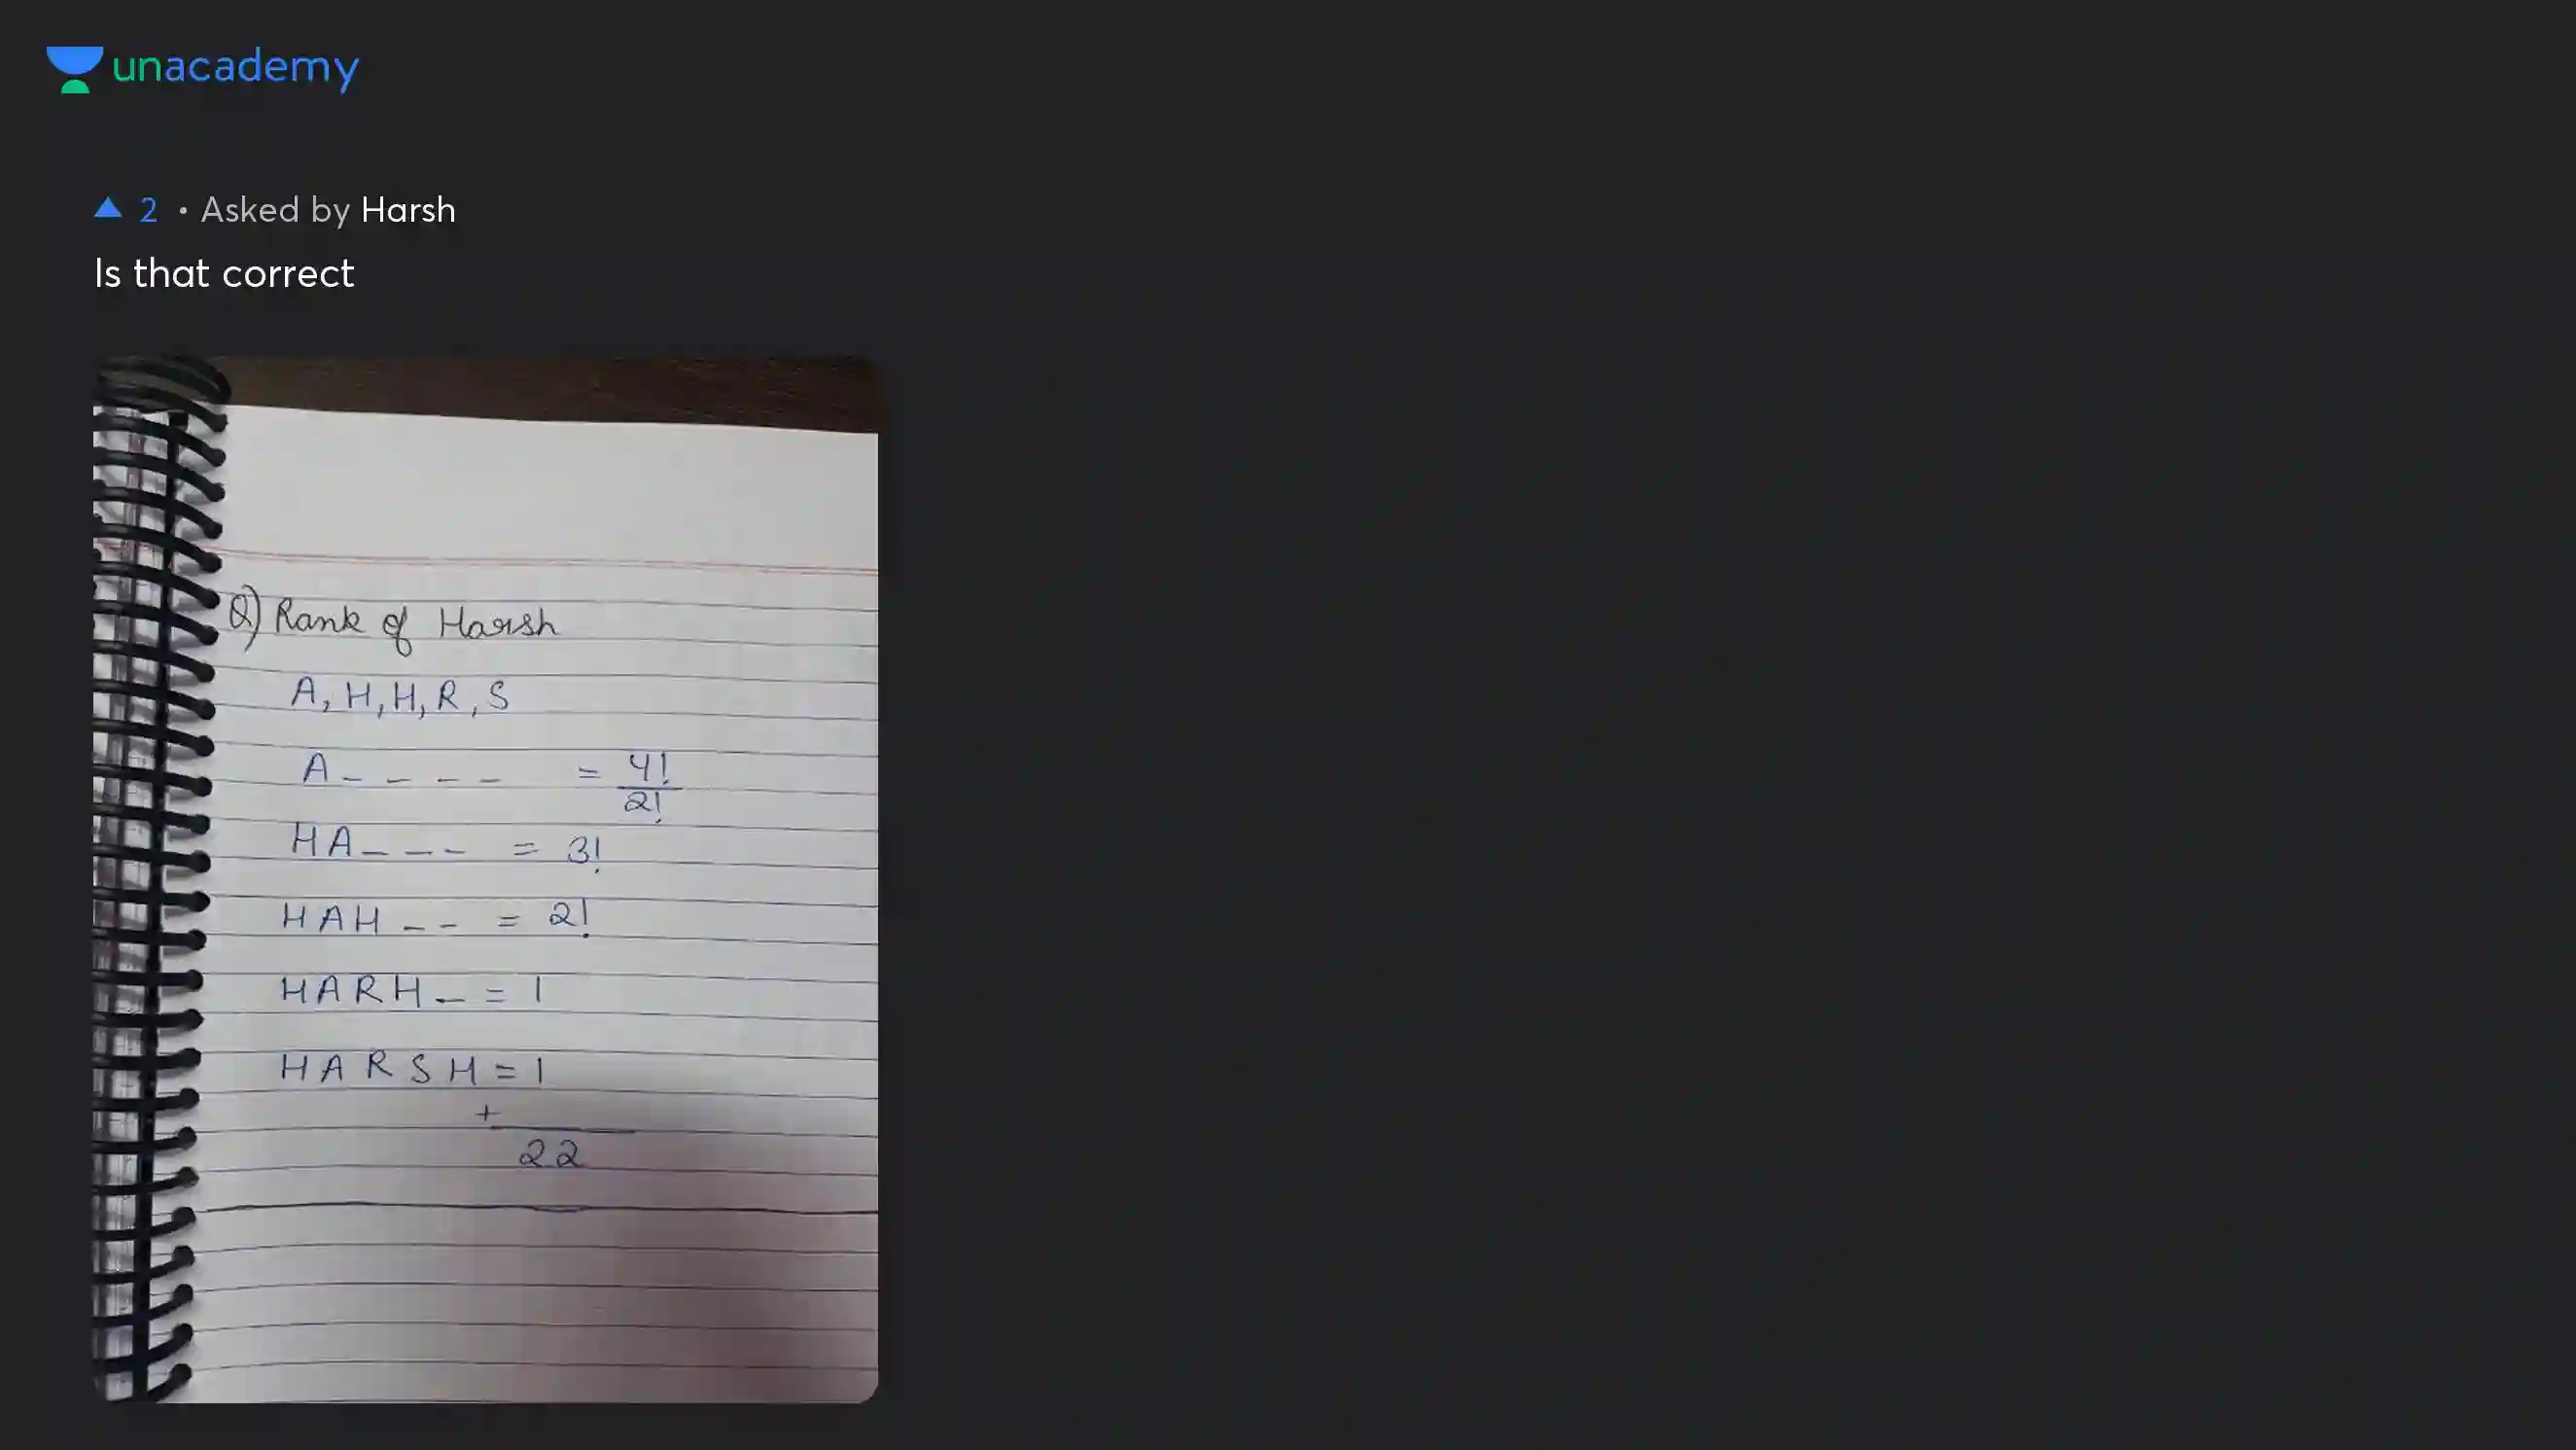 unacademy
▲ 2 • Asked by Harsh
Is that correct
Q) Rank of Harsh
A, H, H, R, S
A _ _ _ _ = 4!/2!
HA _ _ _ = 3!
HAH _ _ = 2!
HARH _ = 1
HARSH = 1
+
22